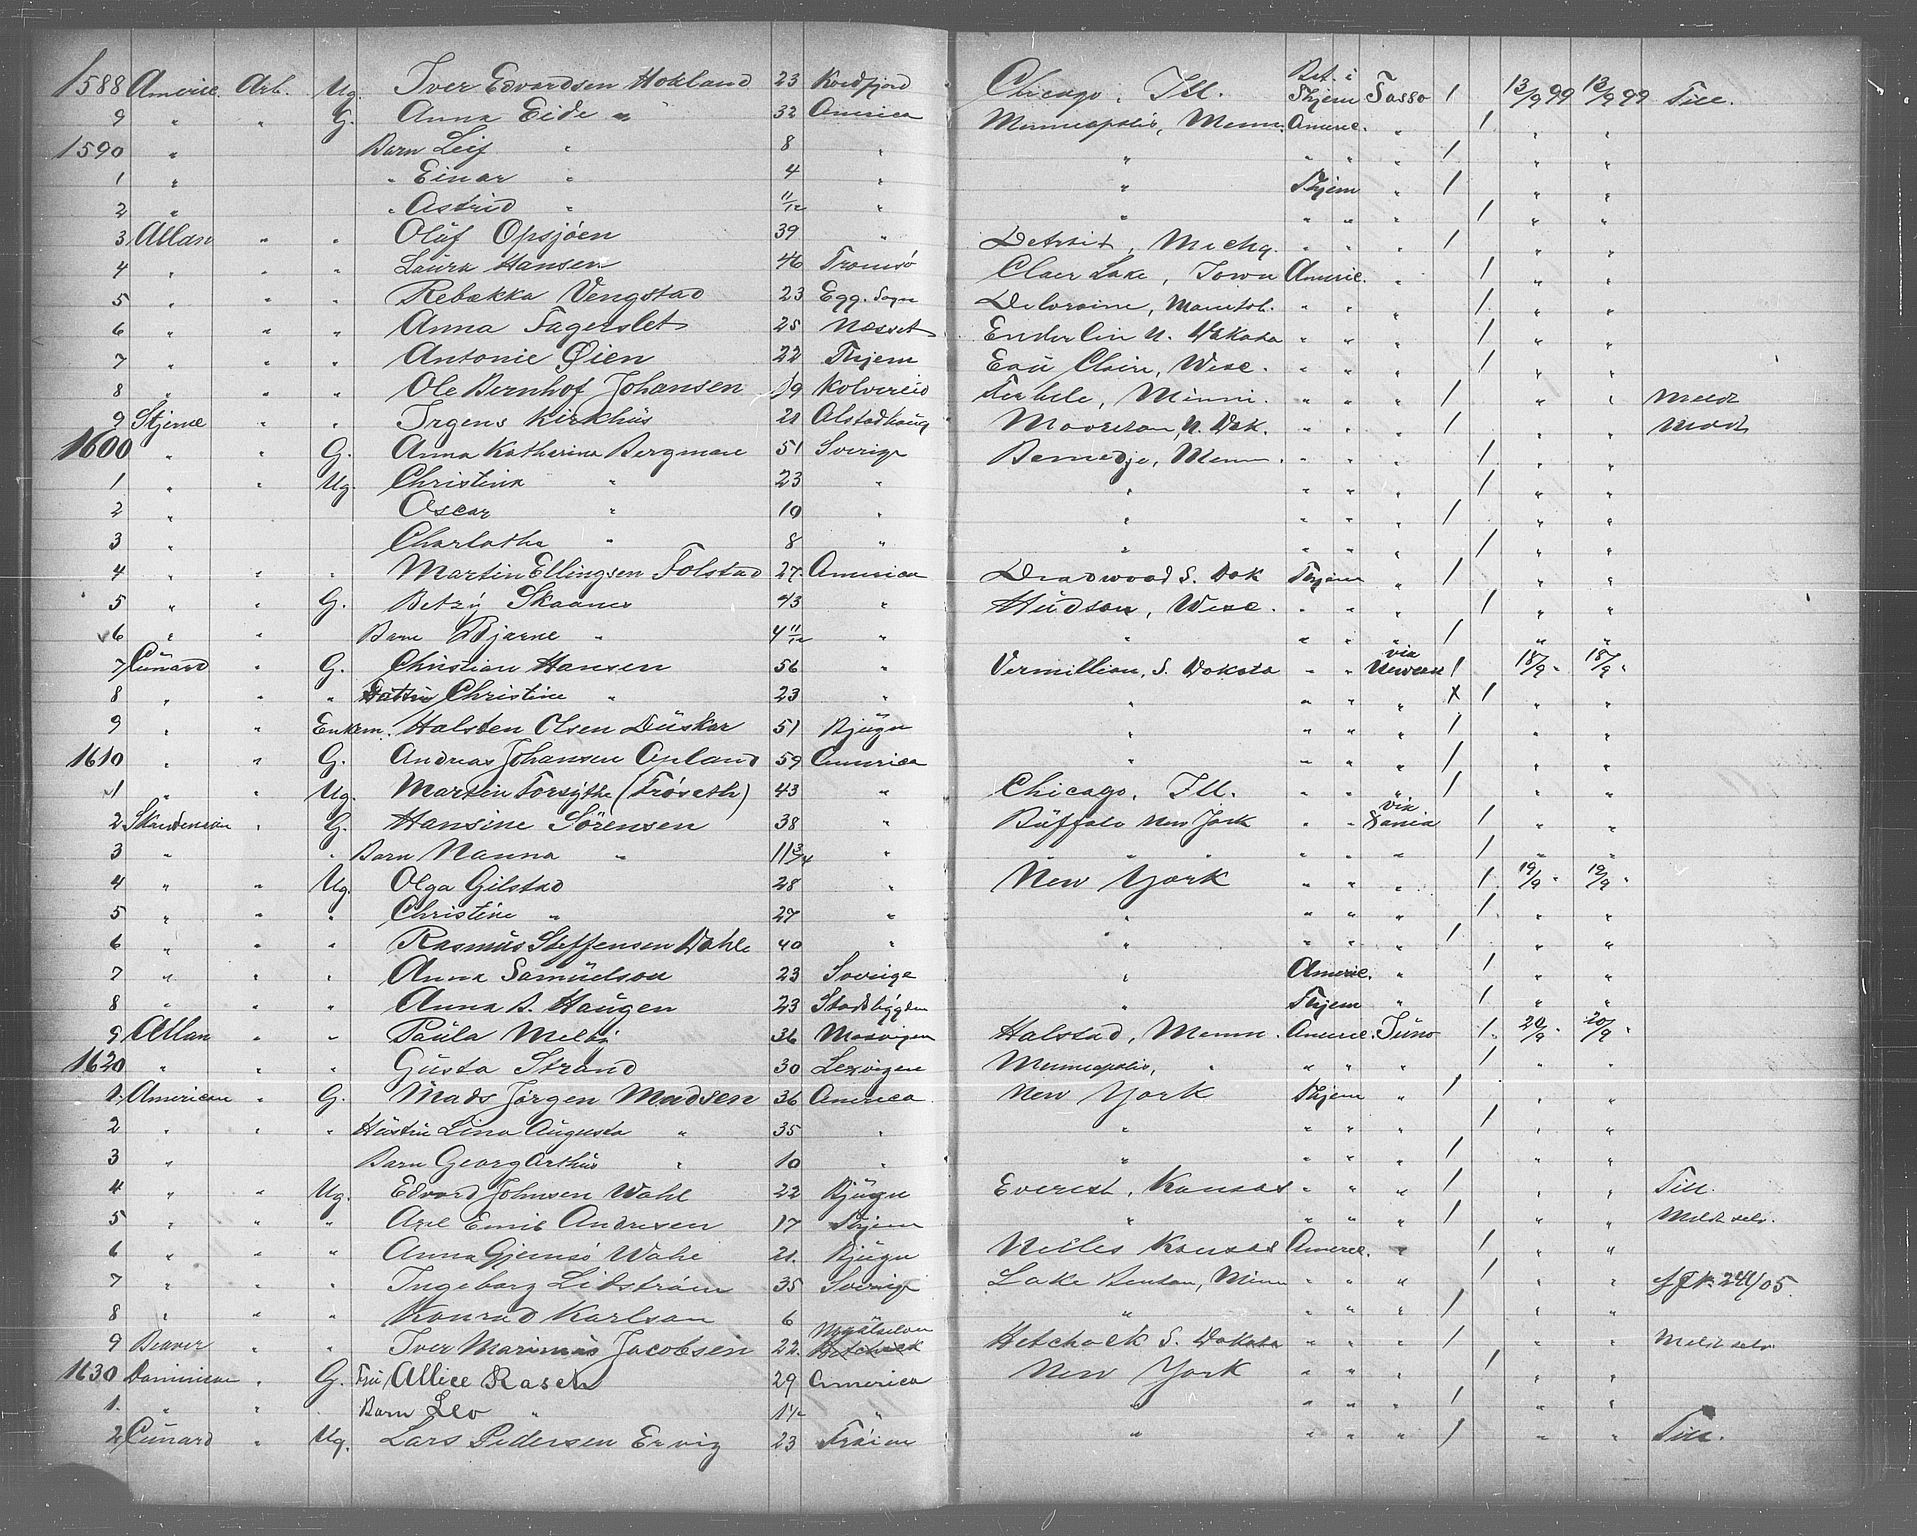 1588 Americ. Arb. Ug. Iver Edvardsen Hokland 23 Kvedfjord Chicago, Ill. Bet. i Thjem Tasso 1 13/9 99 13/9 99 Till.
9 " " G. Anna Eide " 32 America Minneapolis, Minn. Americ. " 1 " "
1590 " Barn Leif " 8 " " " " " 1 " "
1 " " Einar " 4 " " Thjem " 1 " "
2 " " Astrid " 11/12 " " " " " 1 " "
3 Allan " " Oluf Opsjøen 39 " Detroit, Michg. " " " 1 " "
4 " " " Laura Hansen 46 Tromsø Claer Lake, Iowa Americ. " 1 " "
5 " " " Rebekka Vengstad 23 Egg. Sogn Deloraine, Manitob. " " " 1 " "
6 " " " Anna Fagerslet 25 Nesset Enderlin N. Dakota " " " 1 " "
7 " " " Antonie Øien 22 Thjem Eau Claire, Wisc. " " " 1 " "
8 " " " Ole Bernhof Johansen 19 Kolvereid Minni. " " " 1 " " Meldt
9 Stjerne " " Jrgens Kirkhus 21 Alstadhaug Mooreton, N. Dak. " " " 1 " " Meldt
1600 " " G. Anna Katherina Bergman 51 Sverige Bemedje, Minn. " " " 1 " "
1 " " Ug. Christina " 23 " " " " " 1 " "
2 " Oscar " 10 " " " " " 1 " "
3 " Charlotha " 8 " " " " " 1 " "
4 " " " Martin Ellingsen Folstad 27 America Deadwood S. Dak Thjem " 1 " "
5 " " G. Betzy Skaanes 43 " Hudson, Wisc. " " " 1 " "
6 " " Barn Bjarne " 4 11/12 " " " " " 1 " "
7 Cunard " G. Christian Hansen 56 " Vermillion, S. Dakota " " via 1 18/9 " 18/9 "
8 " " " Christine " 23 " " " " " x 1 " "
9 " " Enkem. Halsten Olsen Duskar 51 Bjugn " " " " 1 " "
1610 " " G. Andreas Johansen Opland 59 America " " " " 1 " "
1 " " Ug. Martin Forsythe (Frøseth) 43 " Chicago, Ill. " " " 1 " "
2 Skandenavin " G. Hansine Sørensen 38 " Buffalo New York " " via Xania 1 " "
3 " " Barn Nanna " 11 3/4 " " " " " " 1 " "
4 " " Ug. Olga Gilstad 28 " New York " " " 1 19/9 " 19/9 "
5 " " " Christine " 27 " " " " " 1 " "
6 " " " Rasmus Steffensen Dahle 40 " " " " " 1 " "
7 " " " Anna Samuelson 23 Sverige " Americ. " 1 " "
8 " " " Anna B. Haugen 23 Stadsbygden " Thjem " 1 " "
9 Allan " " Paula Melby 36 Mosvigen Halstad, Minn. Americ. Juno 1 20/9 " 20/9 "
1620 " " " Gusta Strand 30 Lexvigen Minneapolis, " " " " 1 " "
1 American " G. Mads Jørgen Madsen 36 America New York Thjem " 1 " "
2 " " " Hustru Lina Augusta " 35 " " " " " 1 " "
3 " Barn Georg Arthur " 10 " " " " " 1 " "
4 " " Ug. Edvard Johnsen Wahl 22 Bjugn Everest, Kansas " " " 1 " " Till.
5 " " " Axel Emil Andresen 17 Thjem " " " " 1 " " Meldt selv.
6 " " " Anna Gjemsø Wahl 21. Bjugn Kansas Americ. " 1 " "
7 " " " Ingeborg Lidstrøm 35 Sverige Lake Benton, Minn " " " 1 " "
8 " " " Konrad Karlson 6 " " " " 1 " "
9 Beaver " " Iver Marinus Jacobsen 22 Maalselven Hetchock S. Dakota " " " 1 " " Meldt selv
1630 Dominion " G. Fru Allice Rasch 29 America New York " " " 1 " "
1. " " Barn Leo " 1 1/2 " " " " " 1 " "
2 Cunard " Ug. Lars Pedersen Ervig 23 Frøien " " " " 1 " " Till.